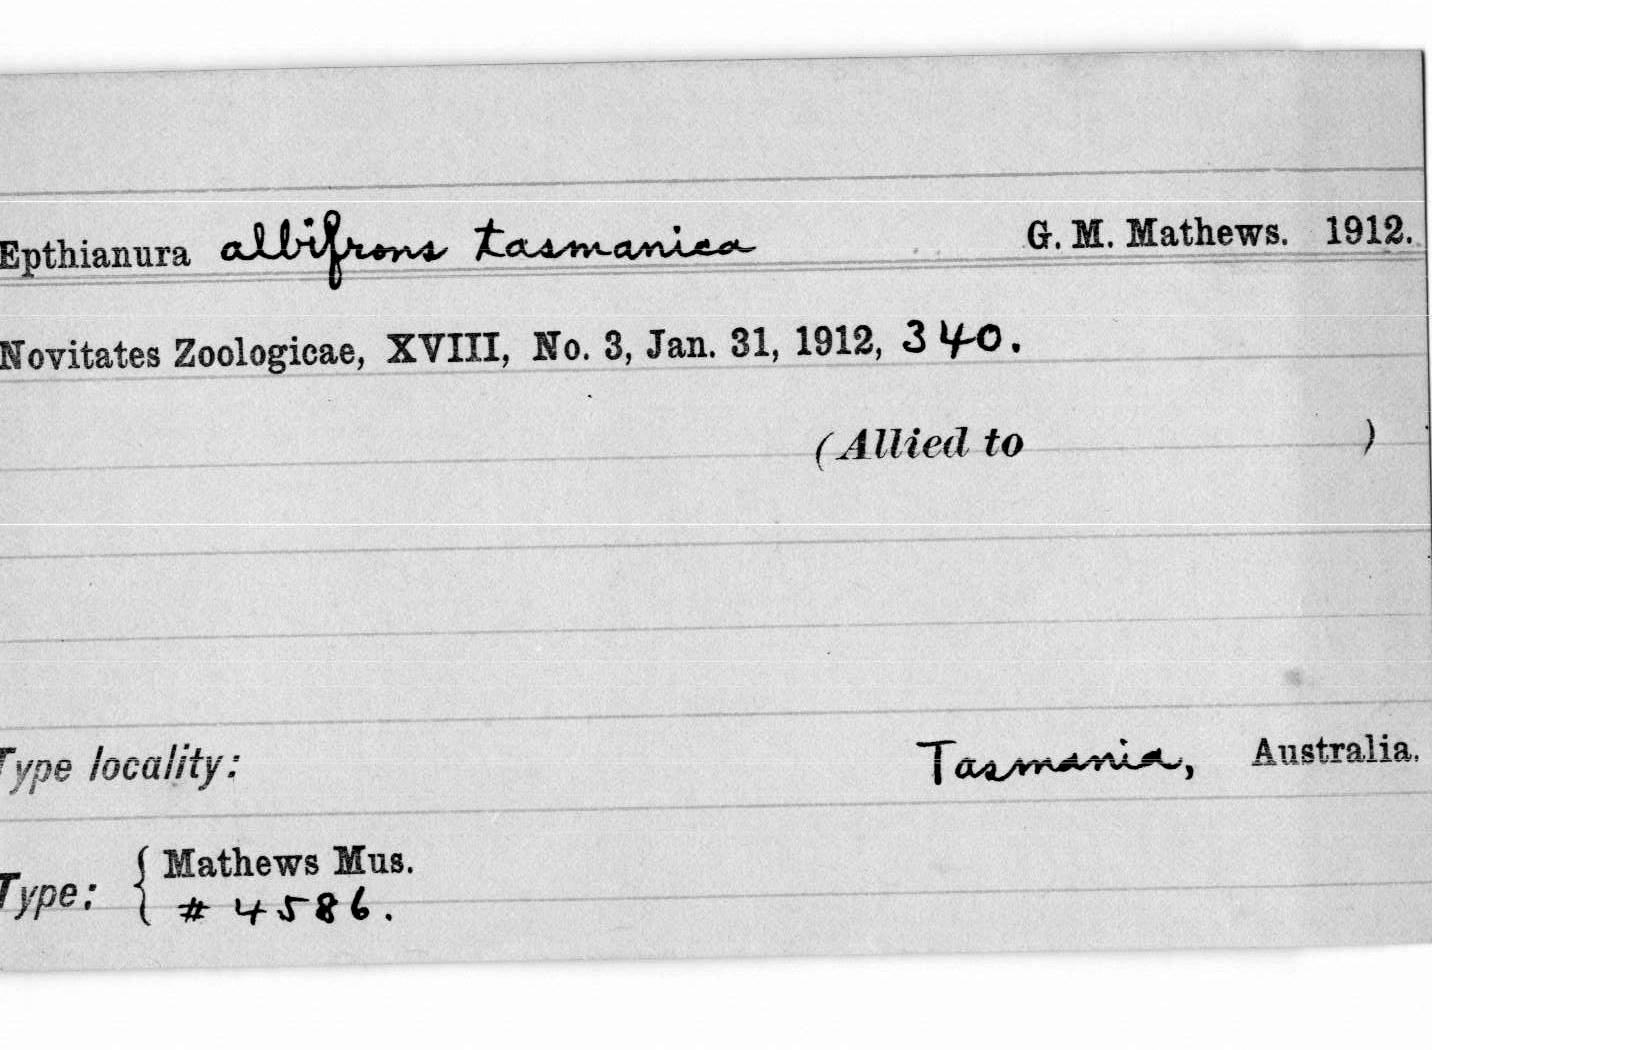 Epthianura albifrons tasmanica G. M. Mathews. 1912.
Novitates Zoologicae, XVIII, No. 3, Jan. 31, 1912, 340.
(Allied to )
Type locality: Tasmania, Australia.
Type: { Mathews Mus.
# 4586.